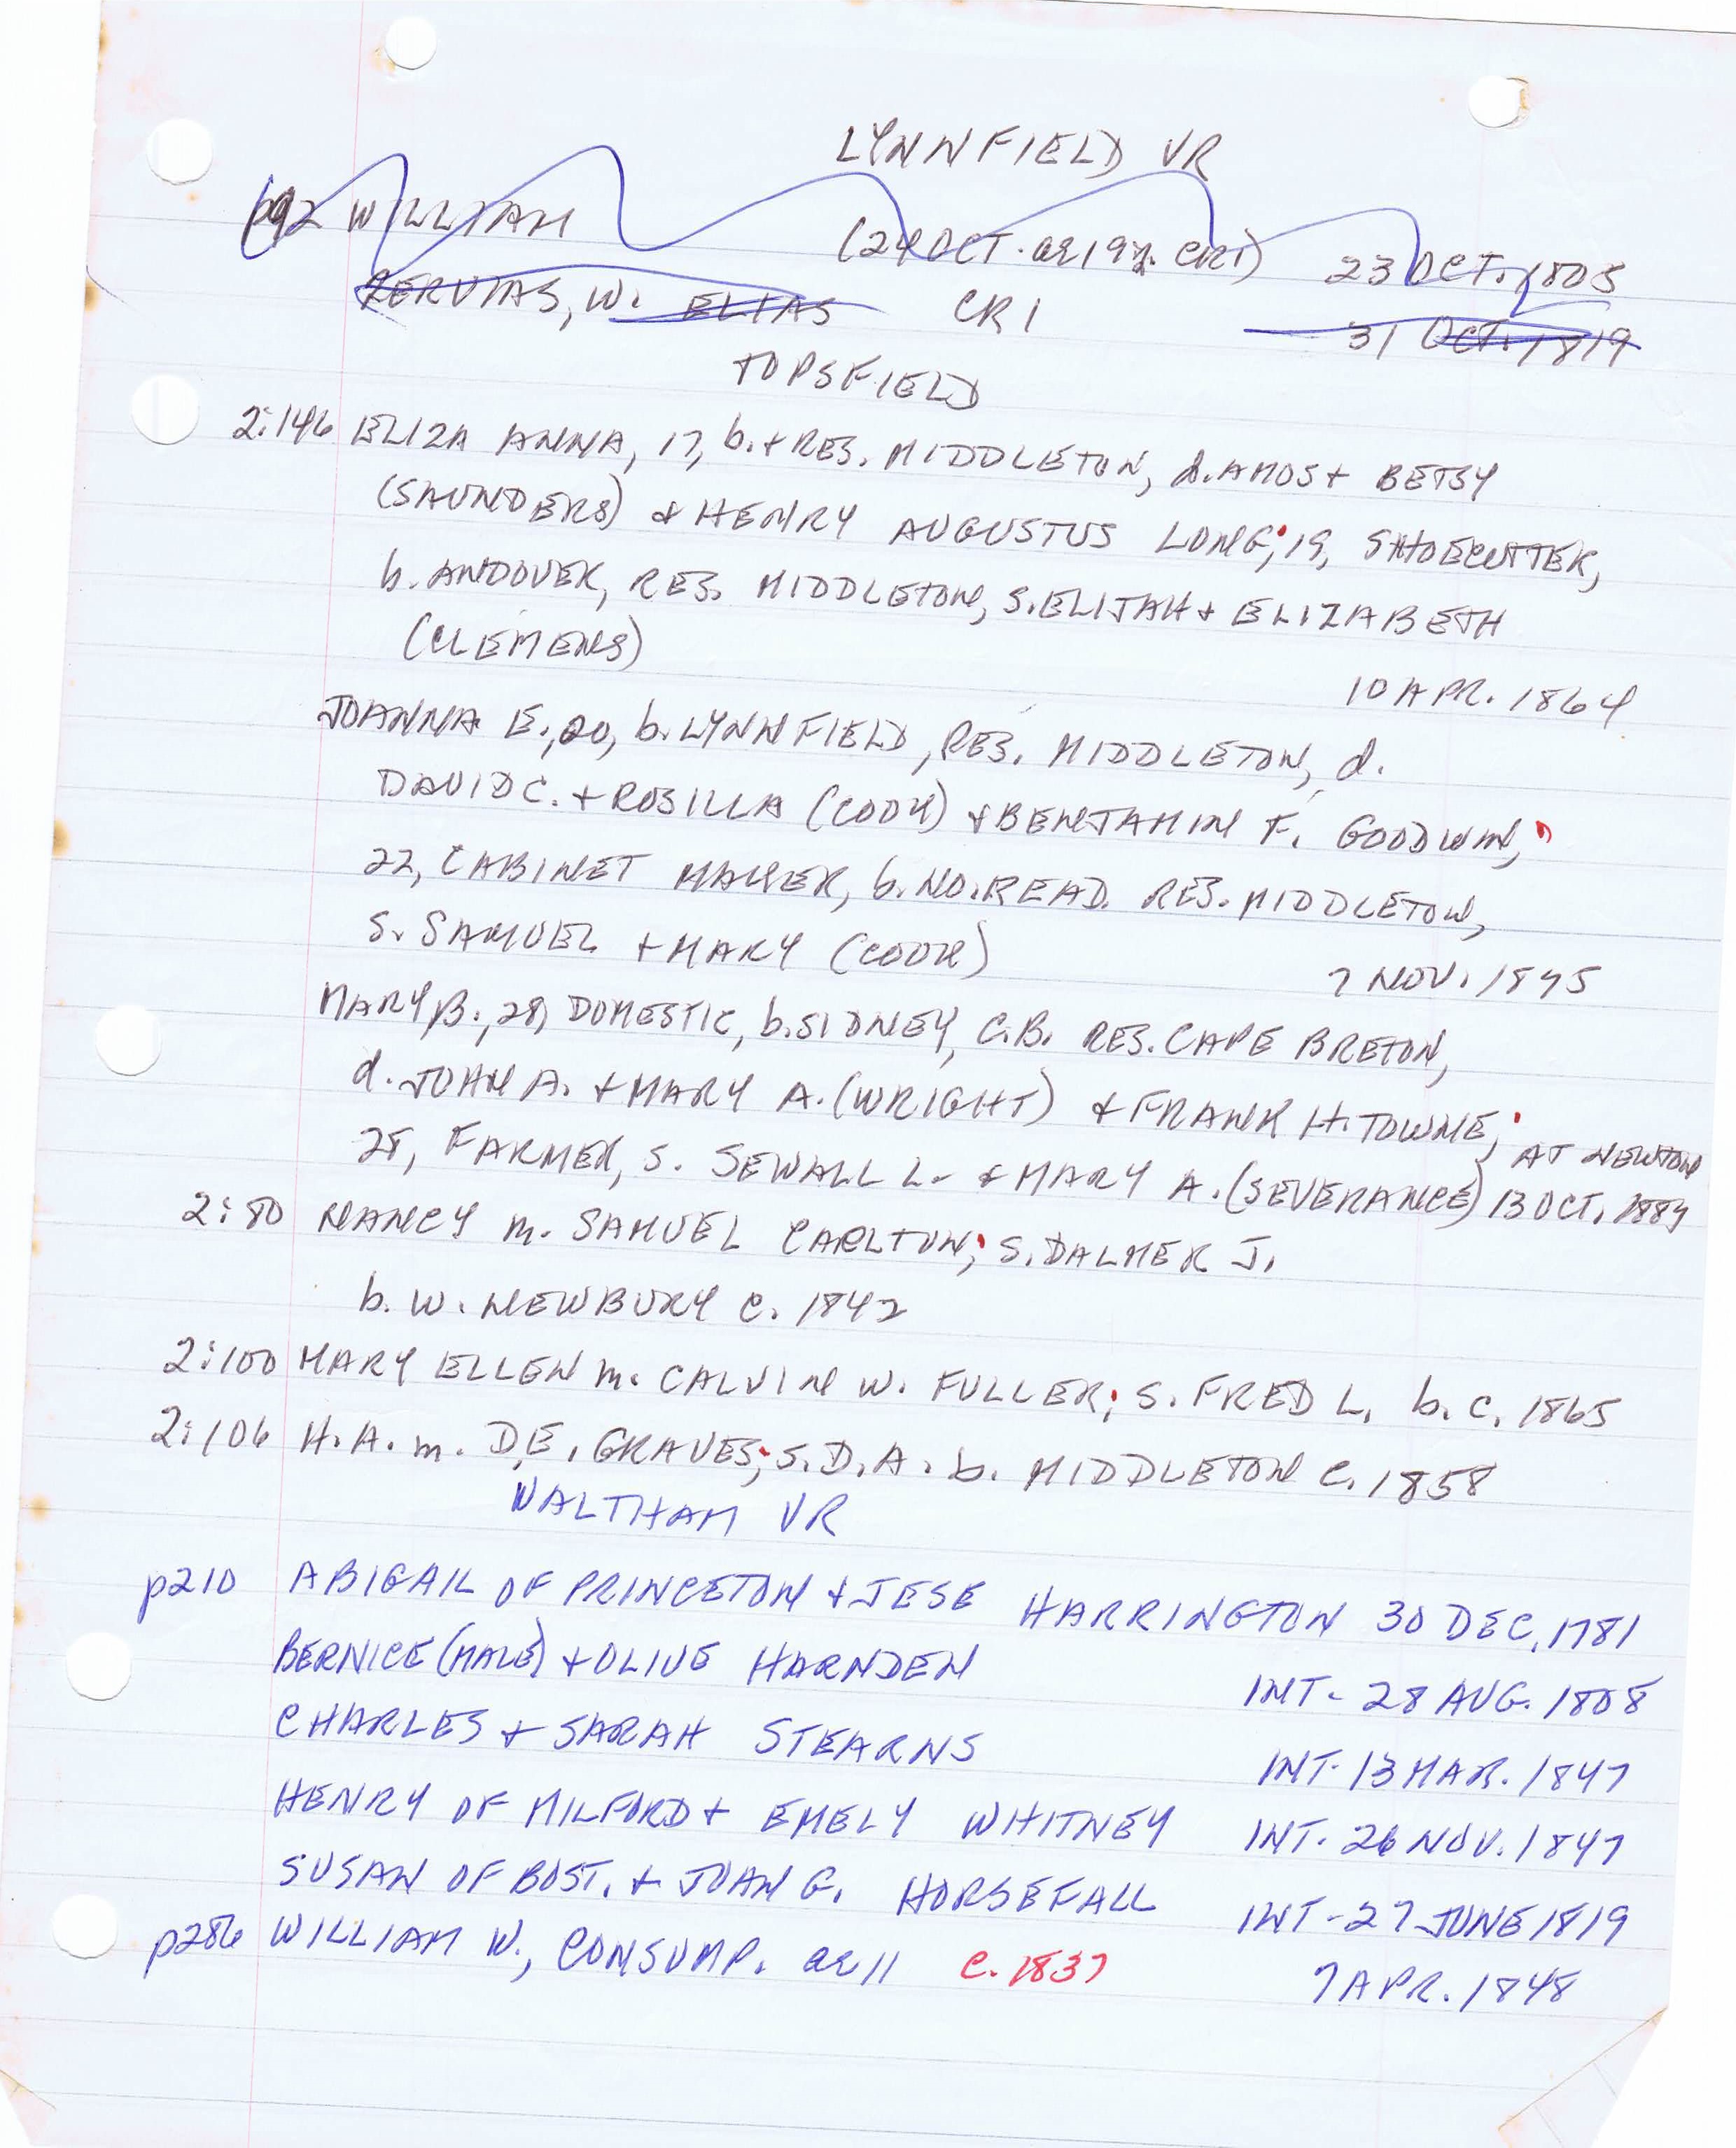 LYNNFIELD VR
p92 WILLIAM (24 OCT. ae 19y. CR1) 23 OCT. 1805
ZERVIAS, W. ELIAS CR1 31 OCT. 1819
TOPSFIELD
2:146 ELIZA ANNA, 17, b. + RES. MIDDLETON, d. AMOS + BETSY
(SAUNDERS) & HENRY AUGUSTUS LONG; 19, SHOECUTTER,
b. ANDOVER, RES. MIDDLETON, S. ELIJAH + ELIZABETH
(CLEMENS)
10 APR. 1864
JOANNA E., 20, b. LYNNFIELD, RES. MIDDLETON, d.
DAVID C. + ROSILLA (COOK) & BENJAMIN F. GOODWIN;
22, CABINET MAKER, b. NO. READ. RES. MIDDLETON,
S. SAMUEL + MARY (COOK) 7 NOV. 1875
MARY B., 28, DOMESTIC, b. SIDNEY, C.B. RES. CAPE BRETON,
d. JOHN A. + MARY A. (WRIGHT) & FRANK H. TOWNE; AT NEWTON
28, FARMER, S. SEWALL L. & MARY A. (SEVERANCE) 13 OCT. 1889
2:80 NANCY m. SAMUEL CARLTON; S. DALMER J.
b. W. NEWBURY C. 1842
2:100 MARY ELLEN m. CALVIN W. FULLER; S. FRED L. b. C. 1865
2:106 H. A. m. D.E. GRAVES; S. D. A. b. MIDDLETON C. 1858
WALTHAM VR
p210 ABIGAIL OF PRINCETON + JESE HARRINGTON 30 DEC. 1781
BERNICE (MALE) + OLIVE HARNDEN INT- 28 AUG. 1808
CHARLES + SARAH STEARNS INT- 13 MAR. 1847
HENRY OF MILFORD + EMELY WHITNEY INT. 26 NOV. 1847
SUSAN OF BOST. + JOHN G. HORSEFALL INT- 27 JUNE 1819
p286 WILLIAM W., CONSUMP. ae 11 C. 1837 7 APR. 1848